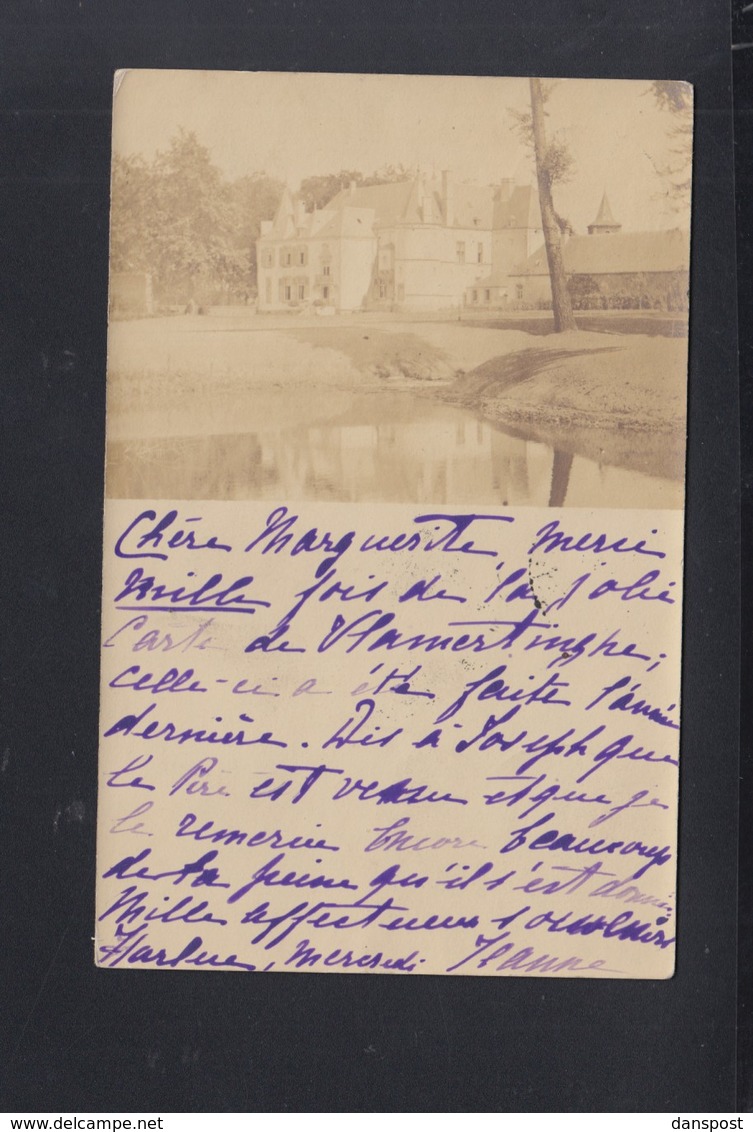 Chère Marguerite, merci
mille fois de la jolie
Carte de Vlamertinghe;
celle-ci a été faite l'année
dernière. Dis à Joseph que
le Père est venu et que je
le remercie encore beaucoup
de la peine qu'il s'est donnée
Mille affectueux souvenirs
Harlue, Mercredi Jeanne
delcampe.net
danspost